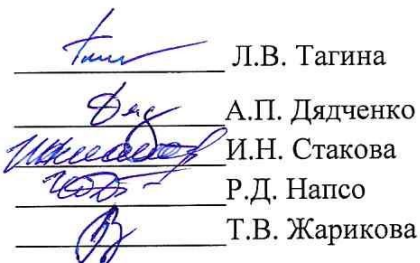 Л.В. Тагина
А.П. Дядченко
И.Н. Стакова
Р.Д. Напсо
Т.В. Жарикова